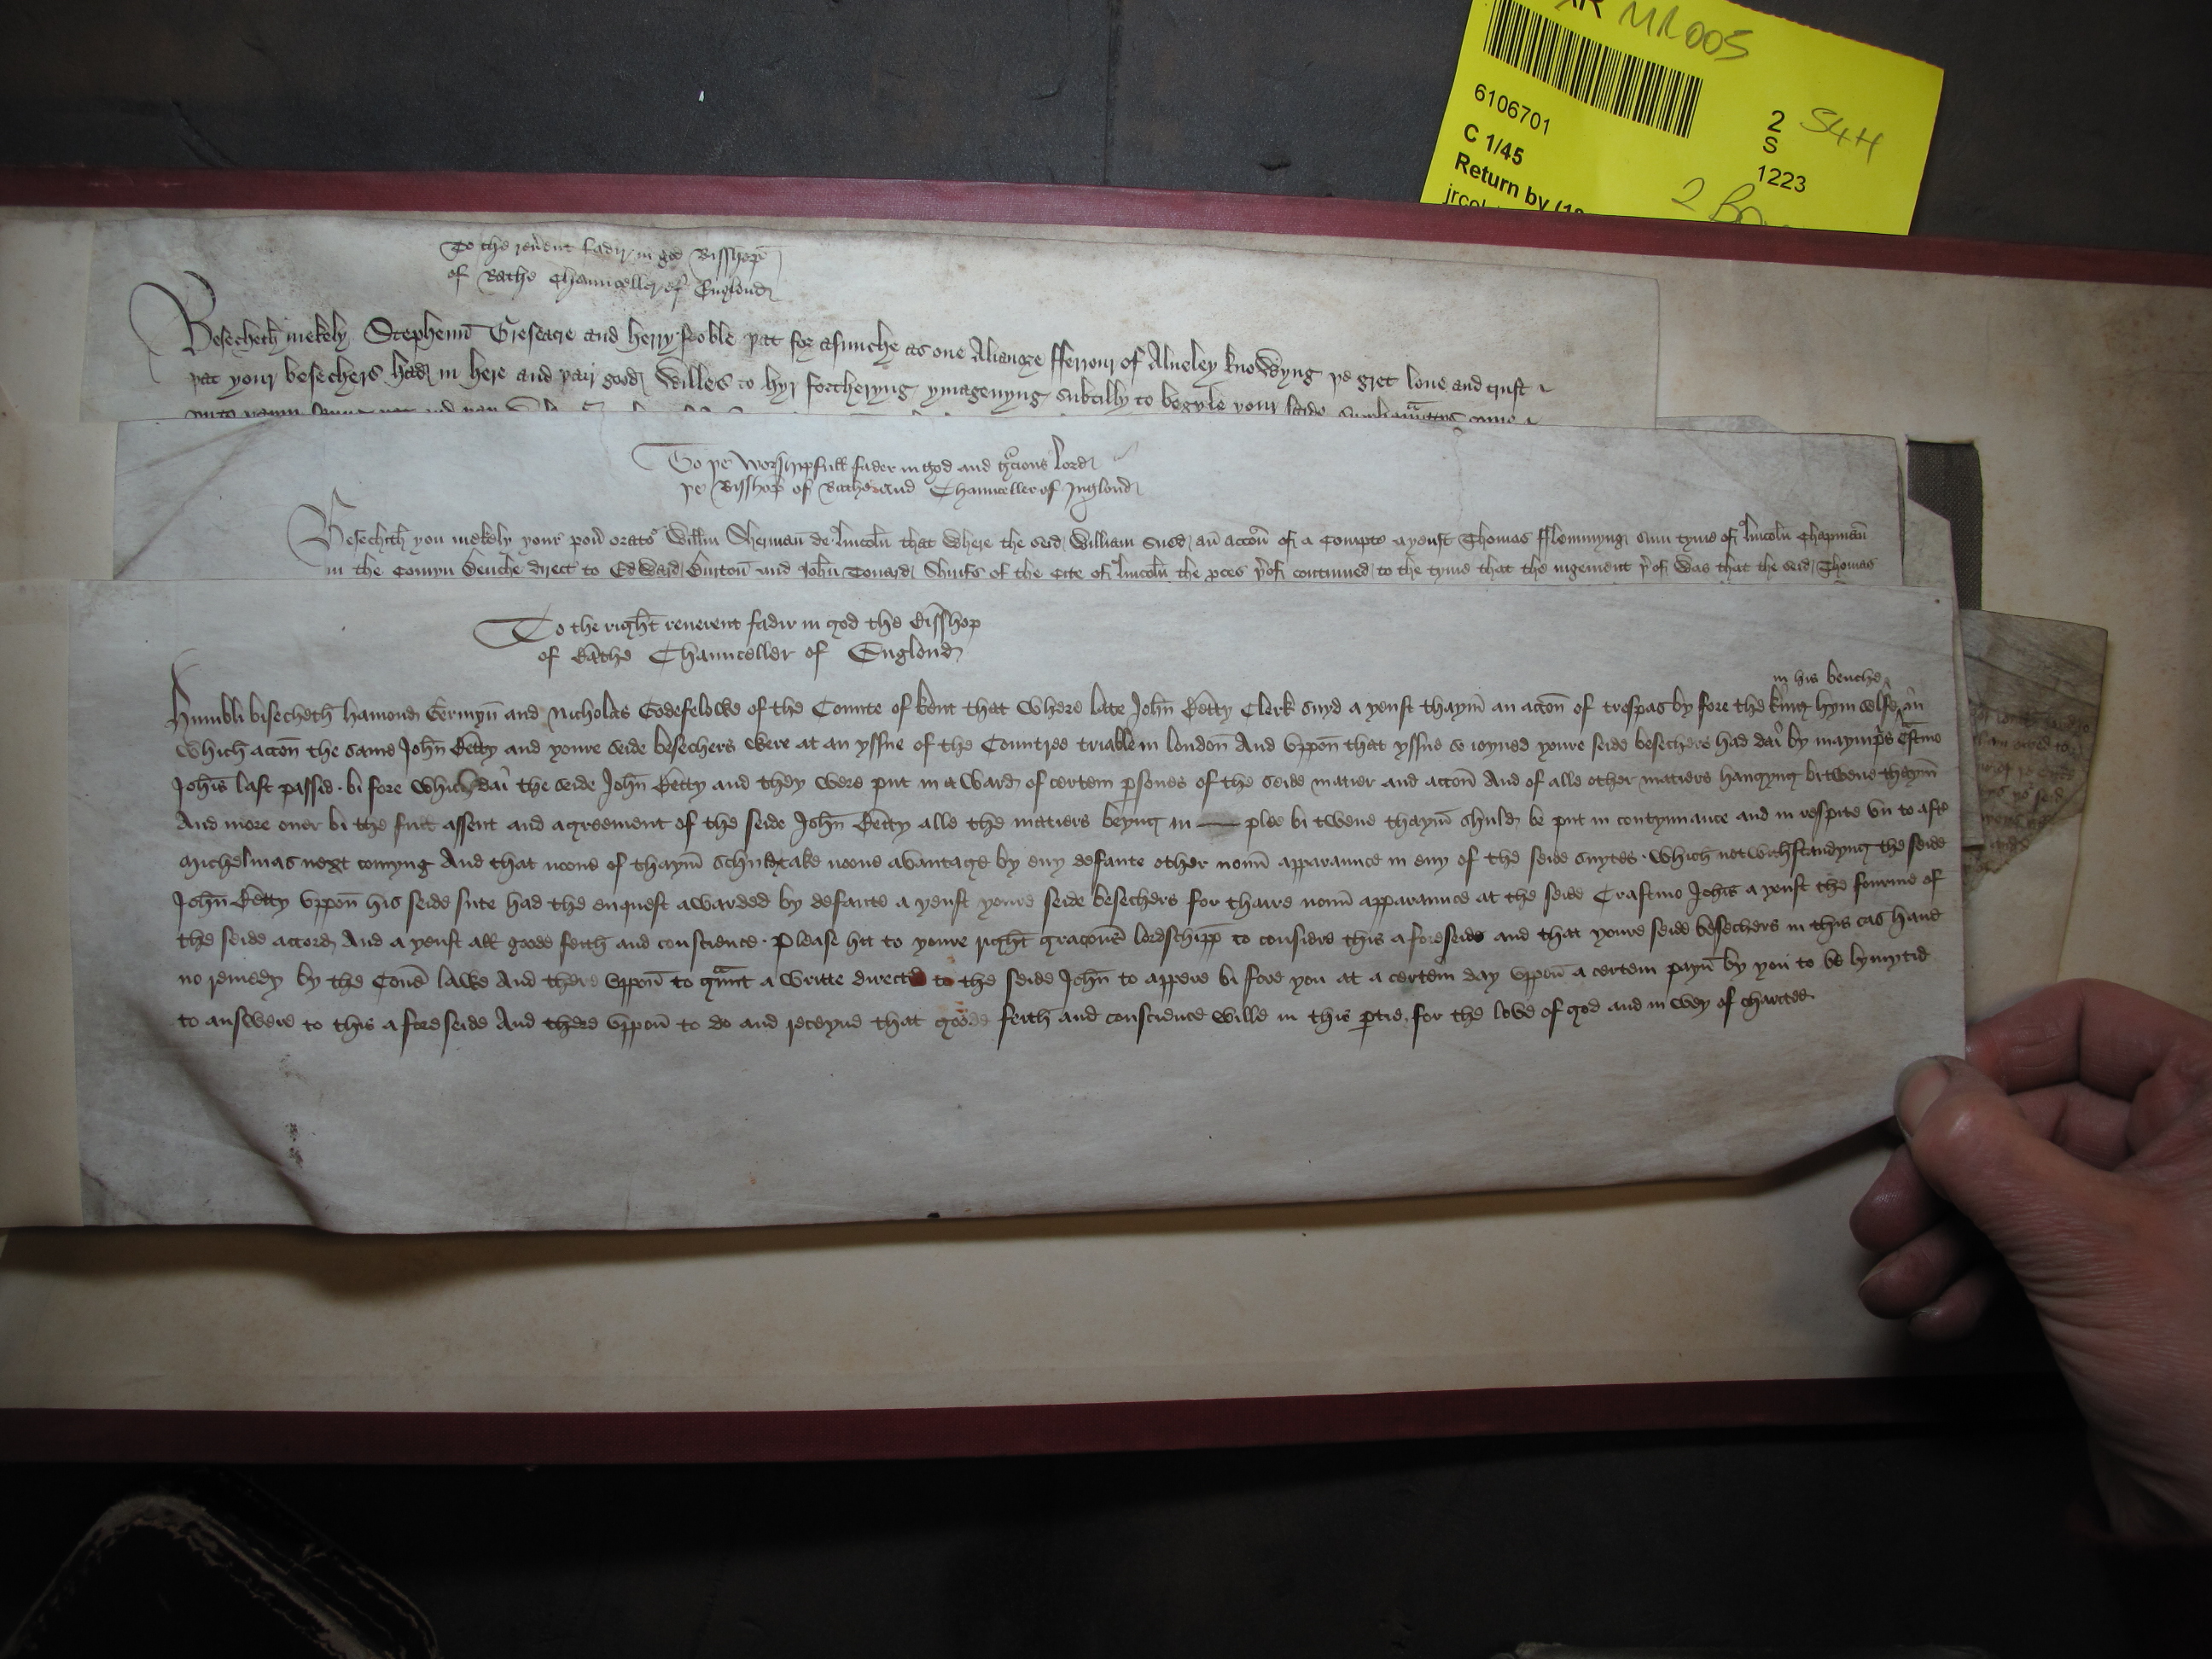 MR005
6106701
2 S4H
C 1/45
S
Return by (18
1223
2 Bo
To the reuerent fadir in god Bisshop
of Bathe Chaunceller of Englond
Besecheth mekely Stephenn Treseare and herry feoble þat for asmuche as one Alianore fferrour of Alueley knowyng þe gret loue and trust
þat your besechers had in here and þair good willes to hyr fortheryng ymagenyng subtilly to begyle your saide
To þe worshipfull fader in god and gracious lord
þe Bisshop of Bathe and Chaunceller of Inglond
Besechith you mekely your pou orato Willm Sherman de lincoln that where the seid William sued an accon of a Compte ayenst Thomas fflemmyng sum tyme of lincoln Chapman
in the Comyn benche direct to Edward Burton and John Touard Shirifs of the Cite of lincoln the pces þof continued to the tyme that the iugement þof was that the seid Thomas
To the right reuerent fadir in god the Bisshop
of Bathe Chaunceller of Englond
in his benche
Humbli bisecheth hamond Germyn and Nicholas Godefelowe of the Counte of kent that where late John Betty Clerk suyd a yenst thaym an accon of trespas by fore the king hym selfe in
which accon the same John Betty and youre seide besechers were at an yssue of the Countree triable in london And vppon that yssue so ioyned youre seide besechers had dai by maynprs Crastino
Johis last passed bi fore which dai the seide John Betty and they were put in a ward of certein psones of the seide matier and accon And of alle other matiers hangyng bitwene thaym
And more ouer bi the full assent and agreement of the seide John Betty alle the matiers beyng in plee bi twene thaym shuld be put in contynuance and in respite vn to afte
Michelmas next comyng And that noone of thaym schuld take noone avantage by eny defaute other nonn apparaunce in eny of the seide suytes which notwithstandyng the seide
John Betty vppon his seide sute had the enquest awarded by defaute a yenst youre seide besechers for thaire nonn apparaunce at the seide Crastino Johis a yenst the fourme of
the seide accord And a yenst all goode feith and conscience Please hit to youre right gracous lordschipp to considre this a foreseide and that youre seide besechers in this cas haue
no remedy by the Coue lawe And there vppon to graunt a writte directe to the seide John to appere bi fore you at a certein day vppon a certein payn by you to be lymytid
to answere to this a foreseide And there vppon to do and receyue that goode feith and conscience wille in this ptie for the love of god and in wey of charitee